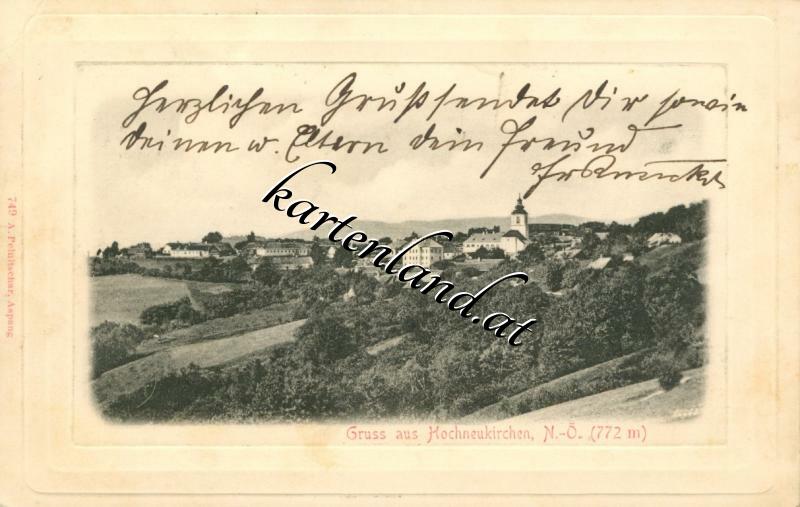 Herzlichen Grußsendet Dir sowie
deinen w. Eltern dein Freund
kartenland.at
Gruss aus Hochneukirchen, N.-Ö. (772 m)
749 A. Peluitschar, Aspang